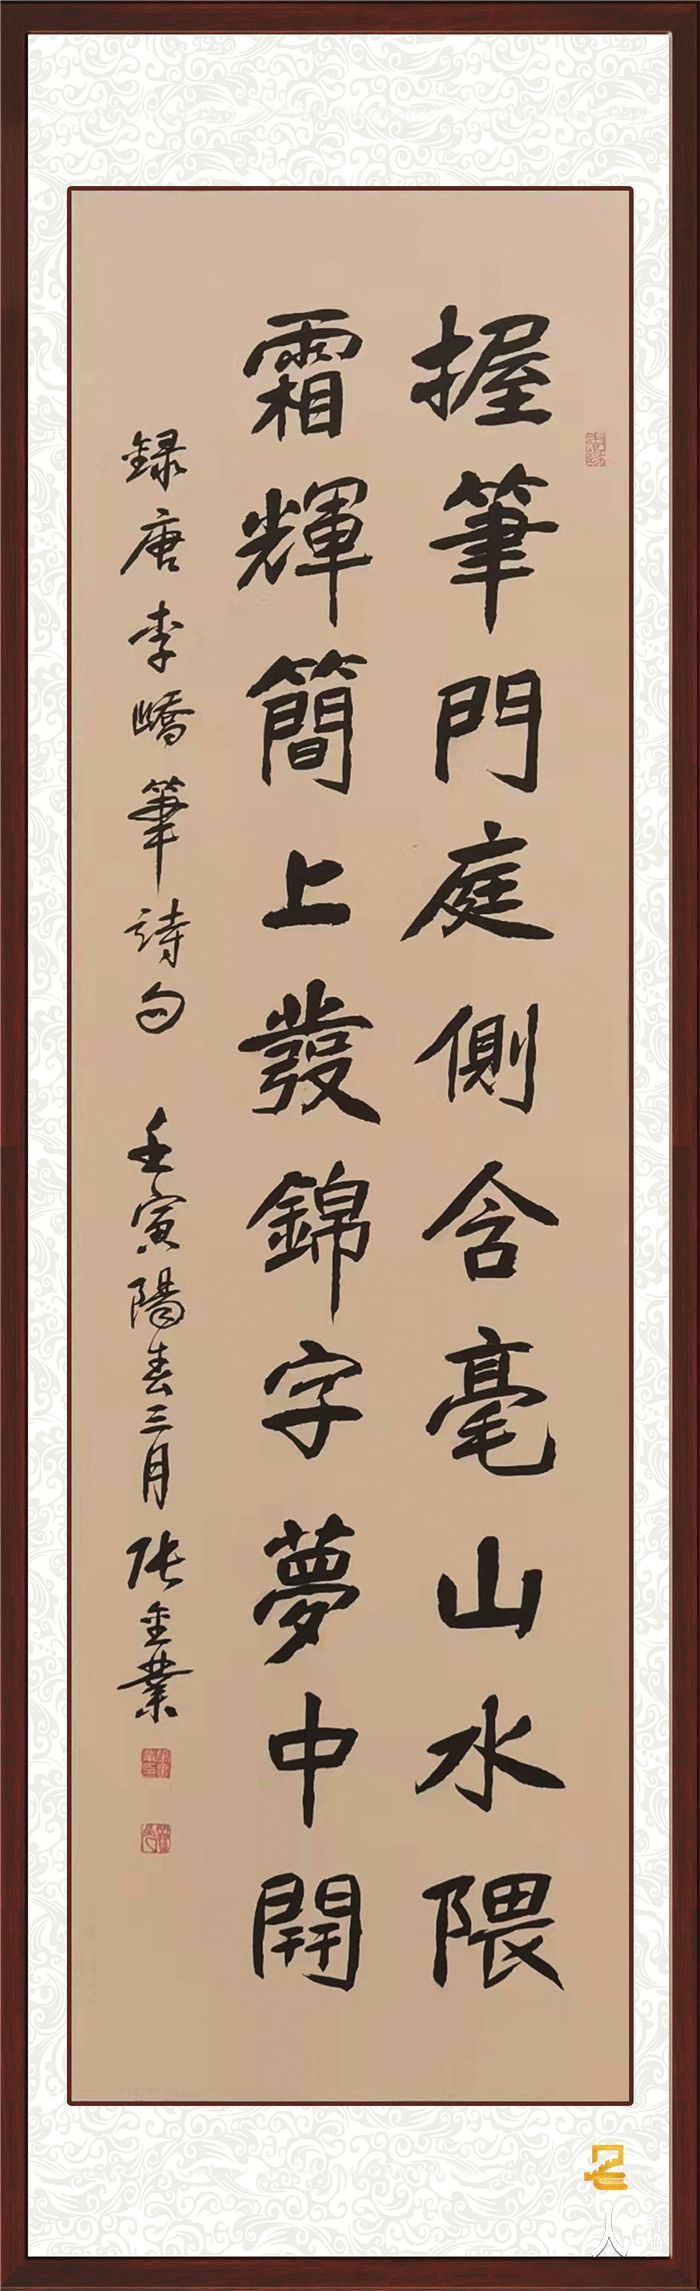 握筆門庭側含毫山水隈
霜輝簡上發錦字夢中開
録唐李嶠筆詩句 壬寅陽春三月 张金業
人